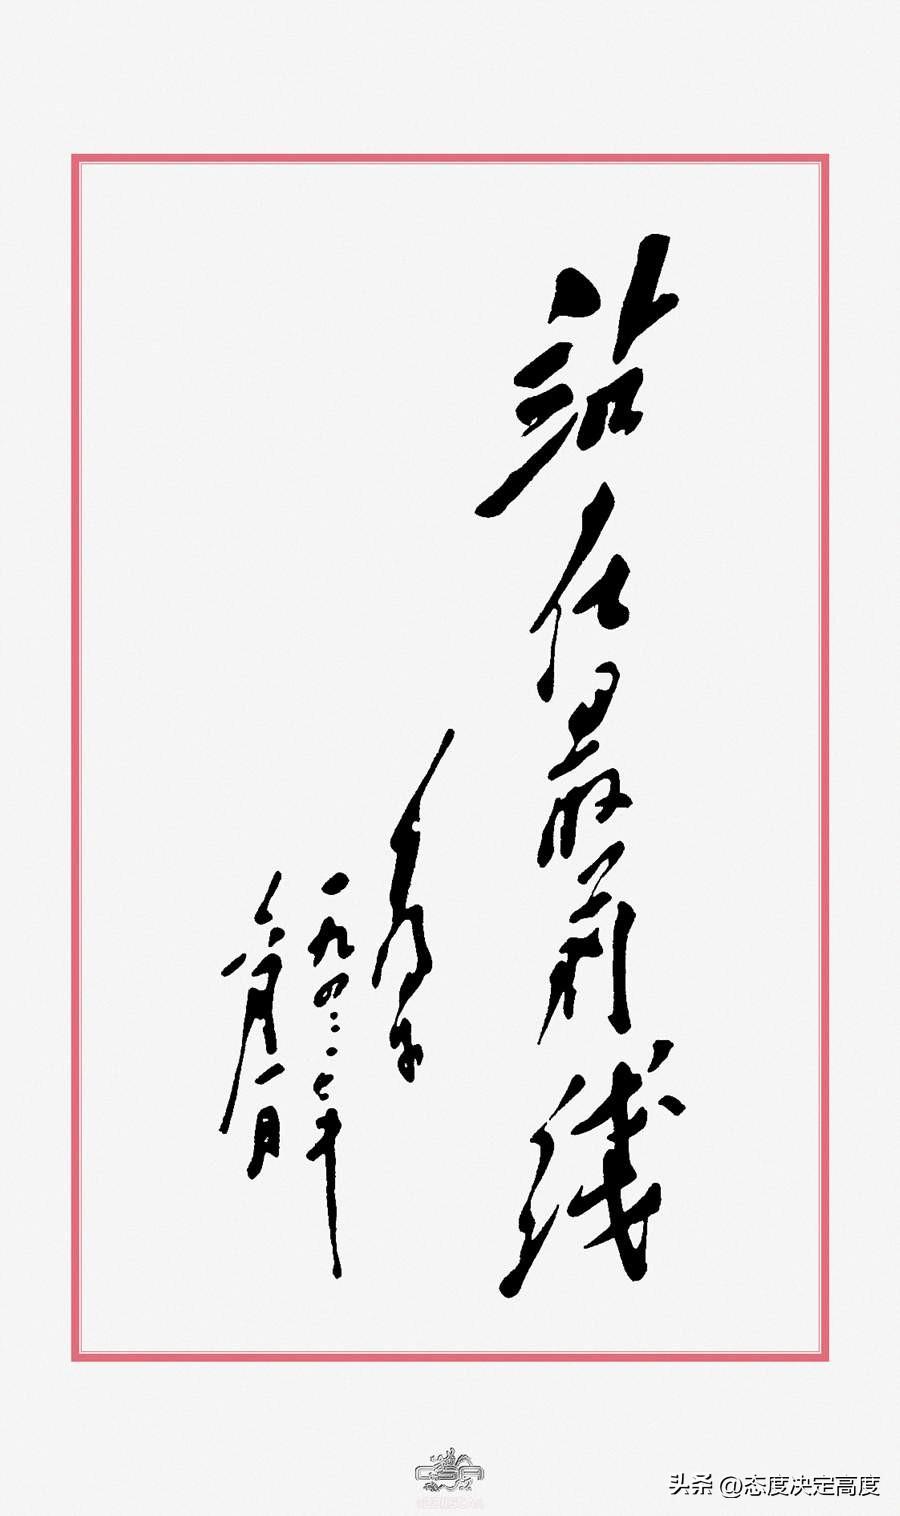 站在最前线
毛泽东
一九四
月一日
头条 @态度决定高度